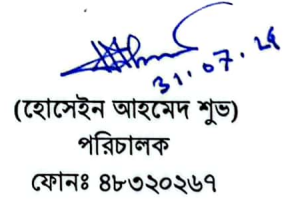 31.07.25
(হোসেইন আহমেদ শুভ)
পরিচালক
ফোনঃ ৪৮৩২০২৬৭